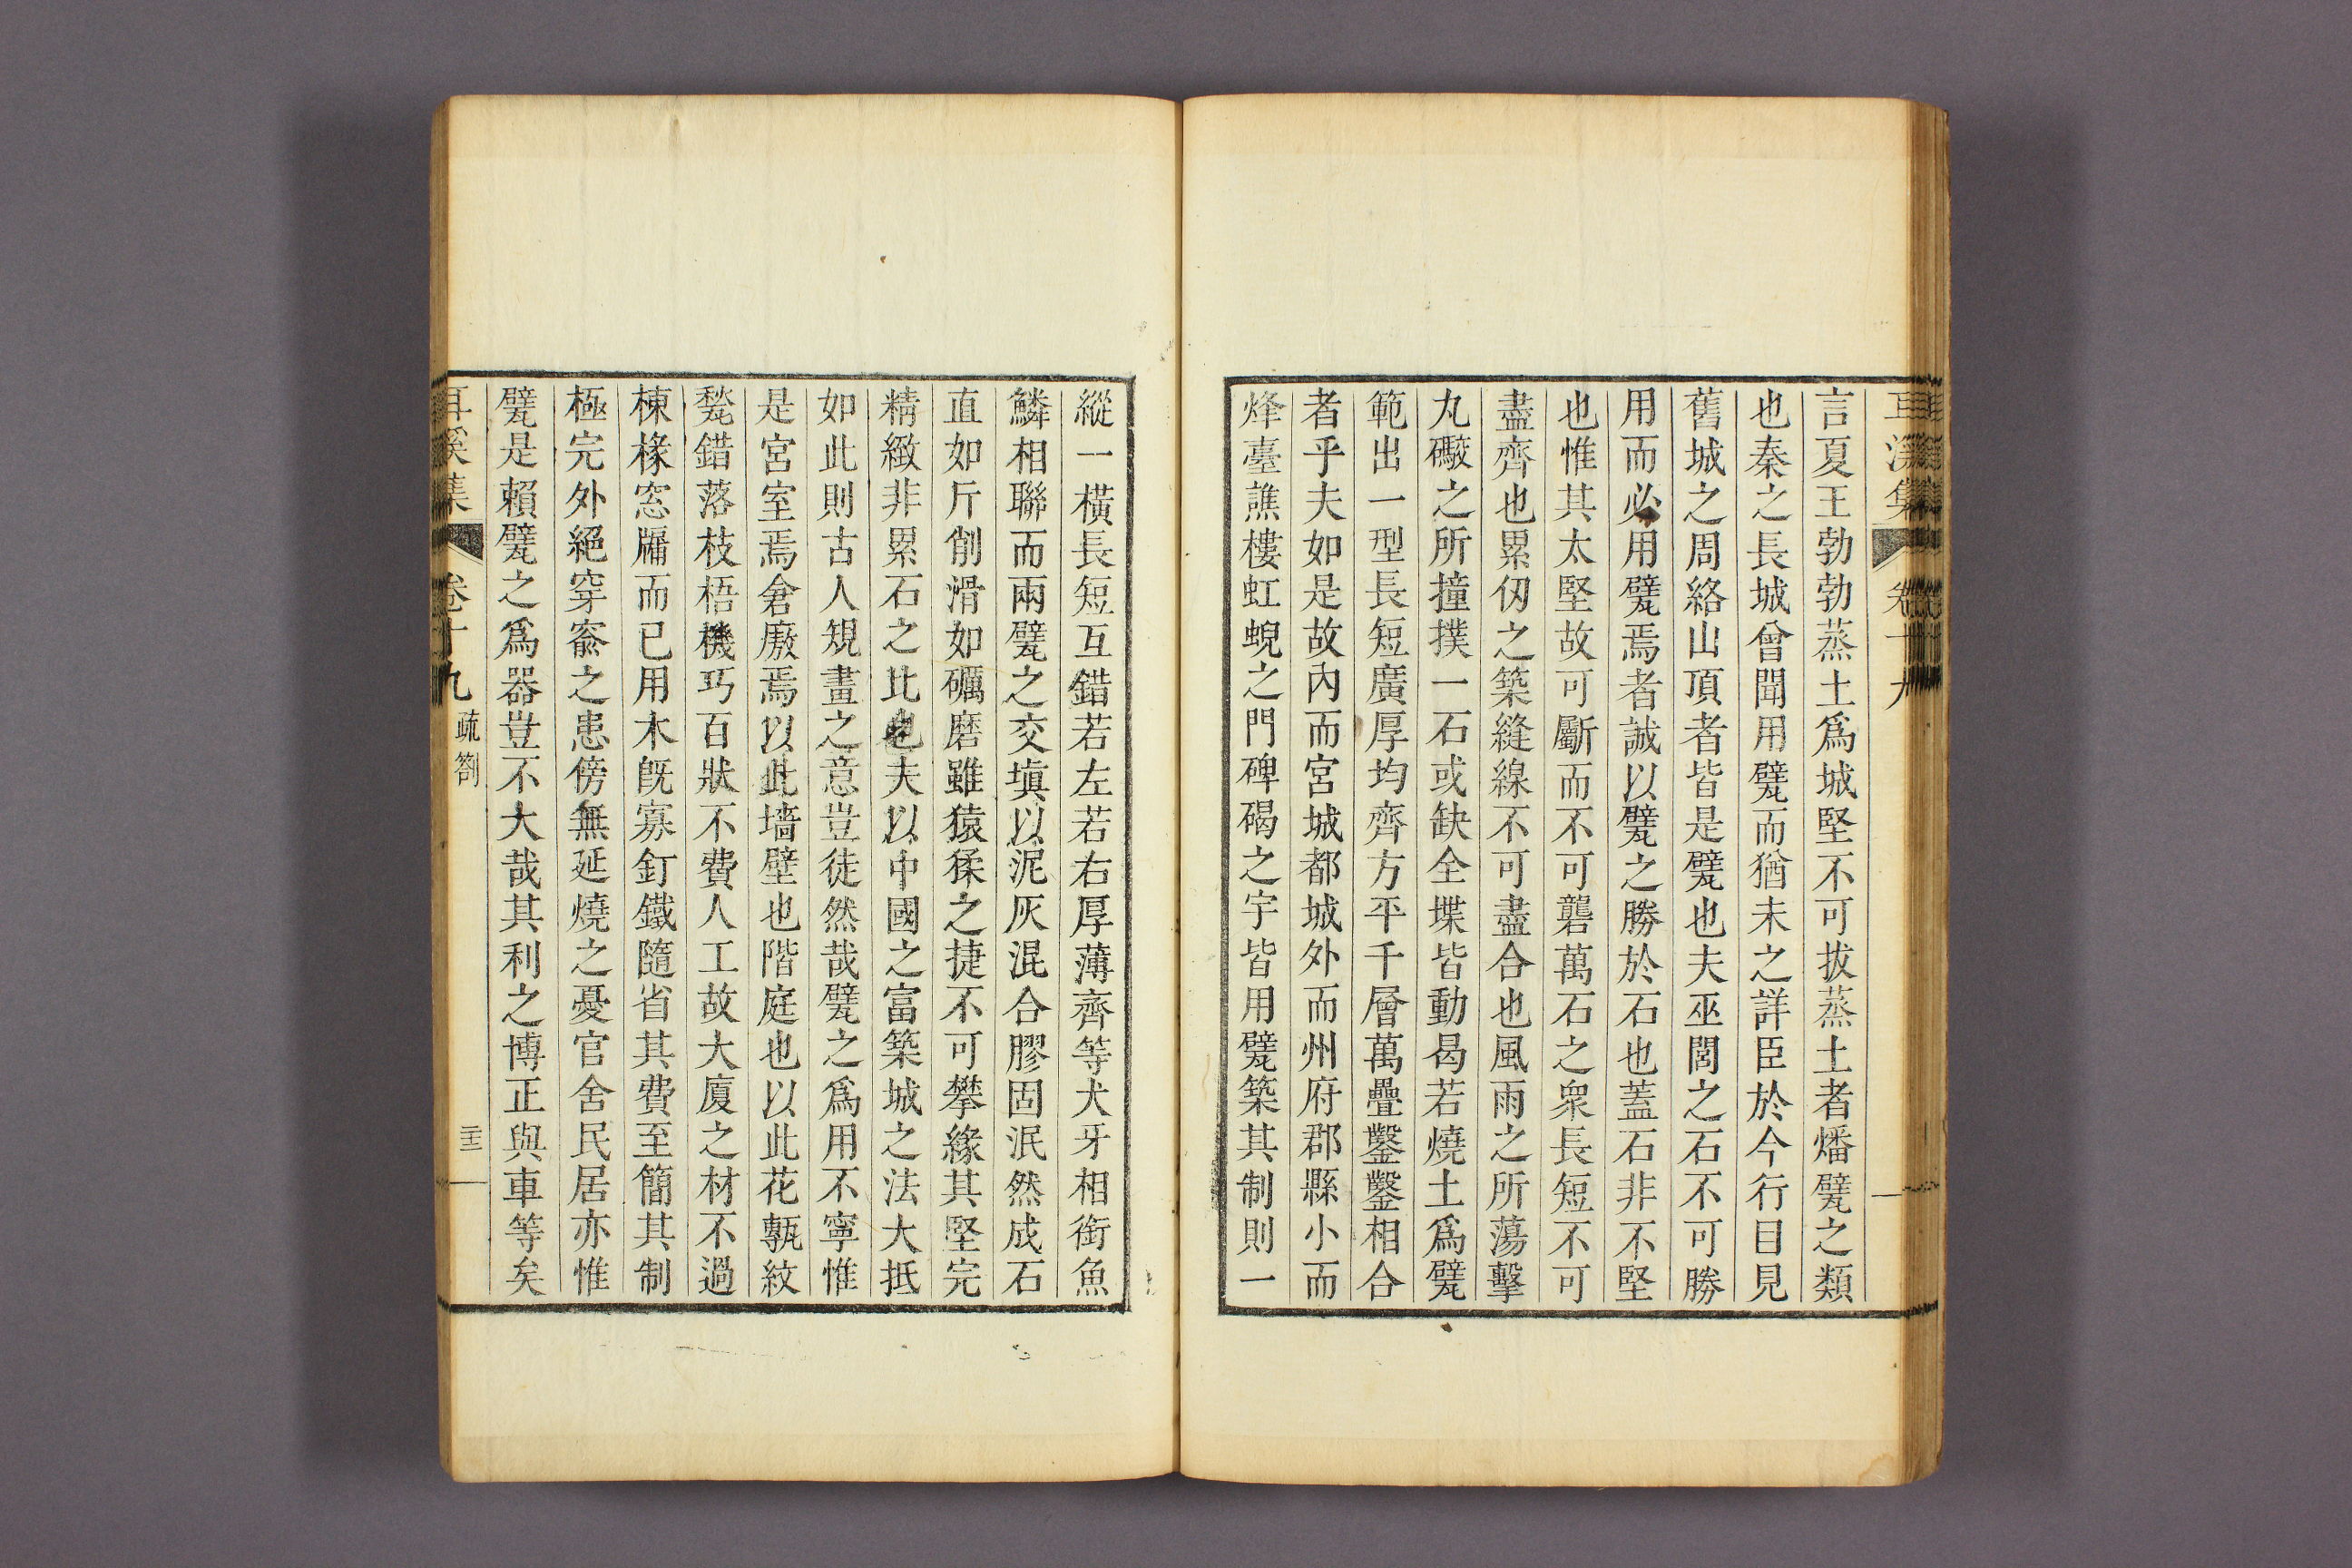 言夏王勃勃蒸土爲城堅不可拔蒸土者燔甓之類
也秦之長城曾聞用甓而猶未之詳臣於今行目見
舊城之周絡山頂者皆是甓也夫巫閭之石不可勝
用而必用甓焉者誠以甓之勝於石也蓋石非不堅
也惟其太堅故可斸而不可礱萬石之衆長短不可
盡齊也累仭之築縫線不可盡合也風雨之所蕩擊
丸礮之所撞撲一石或缺全堞皆動曷若燒土爲甓
範出一型長短廣厚均齊方平千層萬疊鑿鑿相合
者乎夫如是故內而宮城都城外而州府郡縣小而
烽臺譙樓虹蜺之門碑碣之宇皆用甓築其制則一
縱一橫長短互錯若左若右厚薄齊等犬牙相銜魚
鱗相聯而兩甓之交塡以泥灰混合膠固泯然成石
直如斤削滑如礪磨雖猿猱之捷不可攀緣其堅完
精緻非累石之比也夫以中國之富築城之法大抵
如此則古人規畫之意豈徒然哉甓之爲用不寧惟
是宮室焉倉廒焉以此墻壁也階庭也以此花甎紋
甃錯落枝梧機巧百狀不費人工故大廈之材不過
棟椽窓牖而已用木旣寡釘鐵隨省其費至簡其制
極完外絕穿窬之患傍無延燒之憂官舍民居亦惟
甓是賴甓之爲器豈不大哉其利之博正與車等矣
耳溪集 卷十九 疏箚 二十三